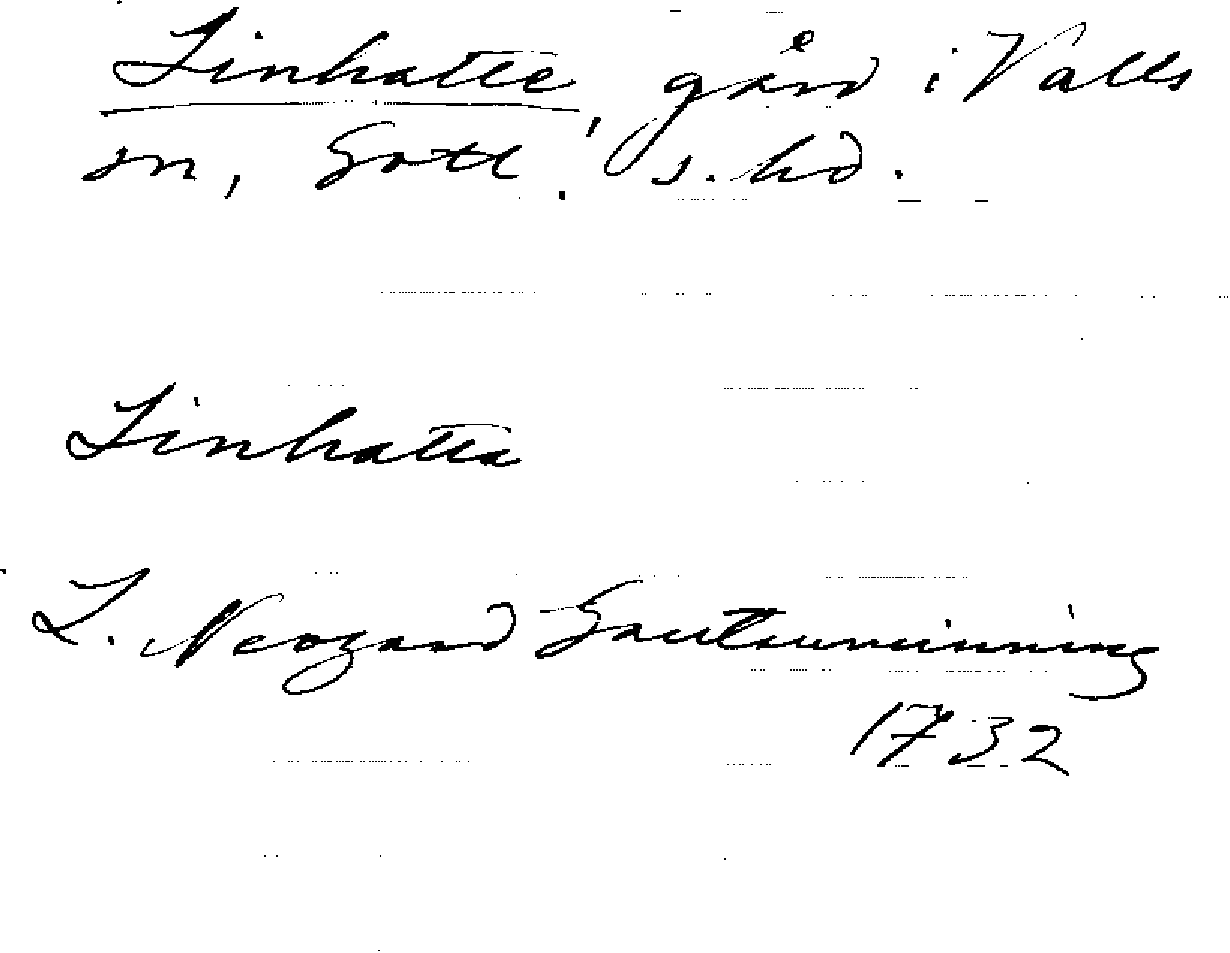 Linhatte, gård i Valls
sn, Gotl. s. hd.
Linhatta
L. Neogard Gautauminning
1732